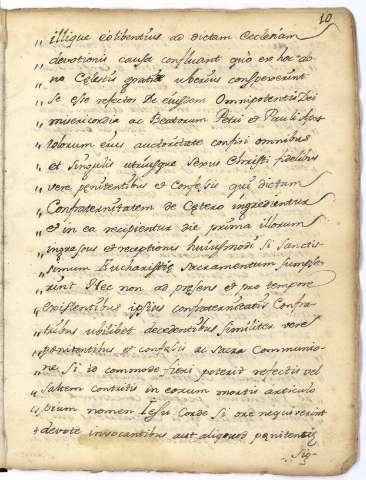 10
„ illique eo libentius ad dictam Ecclesiam
„ devotionis causa confluant quò ex hoc do
„ no Cęlestis gratię uberius conspexerint
„ se esse refectos De eiusdem Omnipotentis Dei
„ misericordia ac Beatorum Petri et Pauli Apos
„ tolorum eius auctoritate confisi omnibus
„ et singulis utriusque sexus Christi fidelibus
„ vere pęnitentibus et Confessis qui dictam
„ Confraternitatem de Cętero ingredientur
„ et in ea recipientur die prima illorum
„ ingressus et receptionis huiusmodi si Sanctis
„ simum Eucharistię Sacramentum sumpse
„ rint Nec non ad presens et pro tempore
„ existentibus ipsius confraternitatis Confra
„ tribus ubilibet decedentibus similiter vere
„ pęnitentibus et confessis ac Sacra Communio
„ ne si id commode fieri poterit refectis vel
„ saltem contritis in eorum mortis articulo
„ pium nomen Iesu Corde si ore nequiverint
„ devote invocantibus aut aliquod pęnitentię
sig-